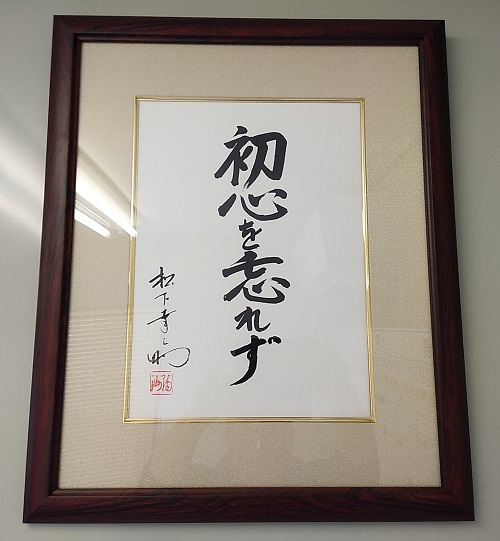 初心を忘れず
松下幸之助